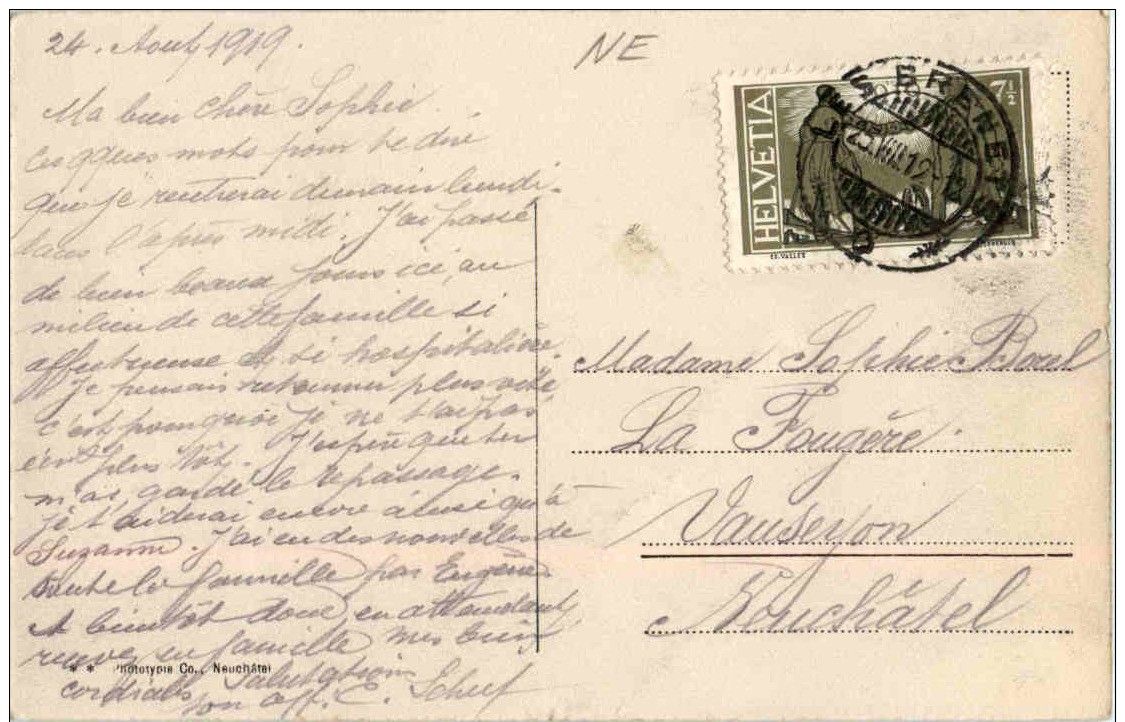 24. Août 1919.
NE
Ma bien chère Sophie.
Ces qques mots pour te dire
que je rentrerai demain lundi
dans l'après midi. J'ai passé
de bien beaux jours ici, au
milieu de cette famille si
affectueuse et si hospitalière.
Je pensais retourner plus vite
c'est pourquoi je ne t'ai pas
écrit plus tôt. J'espère que tu
m'as gardé le repassage.
je t'aiderai encore ainsi qu'à
Suzanne. J'ai eu des nouvelles de
toute la famille par Eugène
A bientôt donc, en attendant,
reçevez en famille mes bien
cordiales salutations
ton aff. C.
* * Phototypie Co., Neuchâtel
HELVETIA
7½
BRENETS
25.VIII.19
ED. VALLET
Madame Sophie Borel
La Fougère.
Vauseyon
Neuchâtel